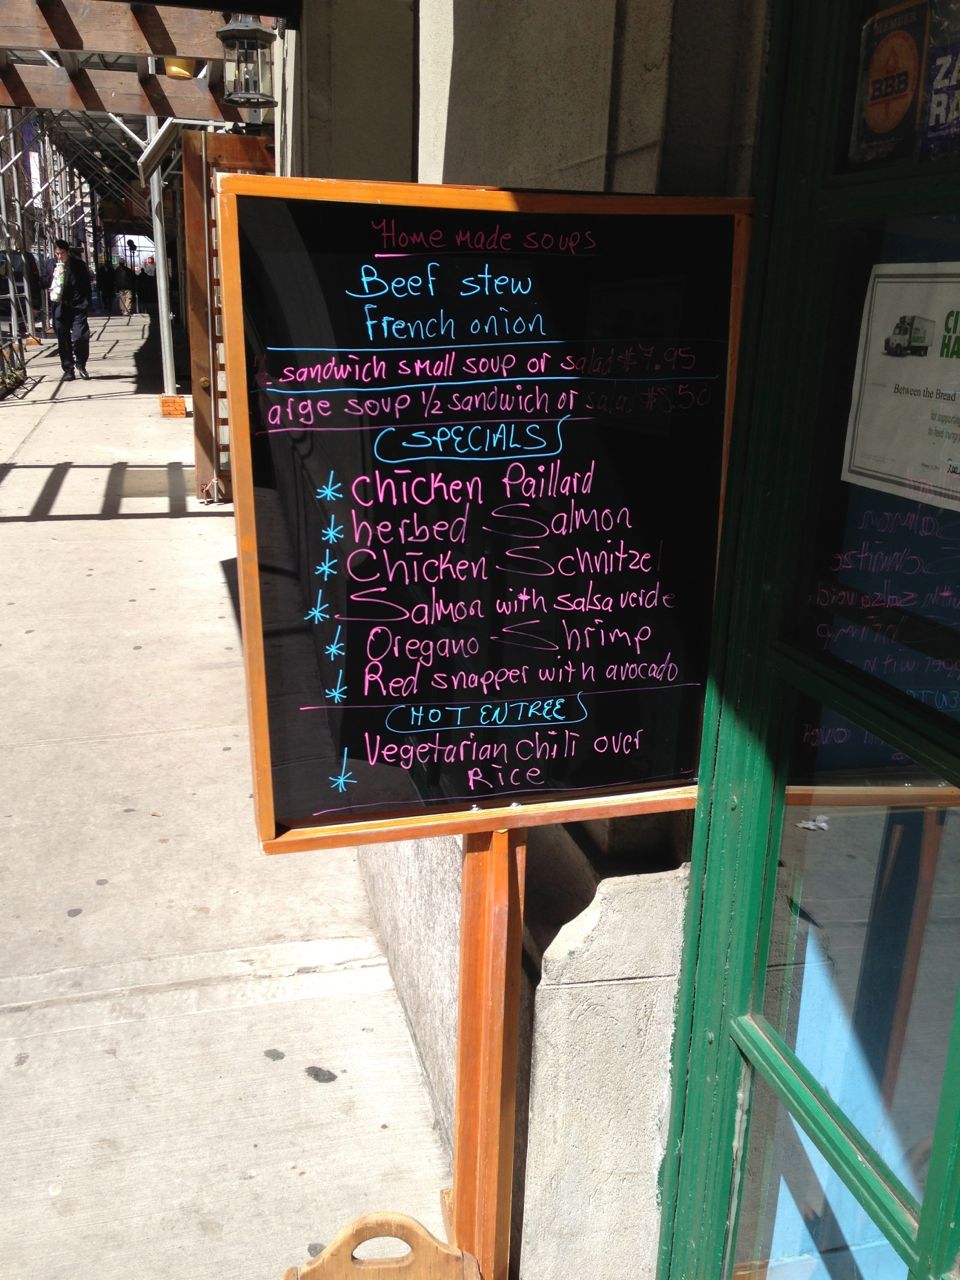 Home made soups
Beef stew
French onion
sandwich small soup or salad $7.95
arge soup 1/2 sandwich or salad
SPECIALS
* Chicken Paillard
* herbed Salmon
* Chicken Schnitzel
* Salmon with salsa verde
* Oregano Shrimp
* Red snapper with avocado
HOT ENTREE
* Vegetarian chili over
Rice
MEMBER
BBB
ZA
RA
CI
HA
Between the Bread